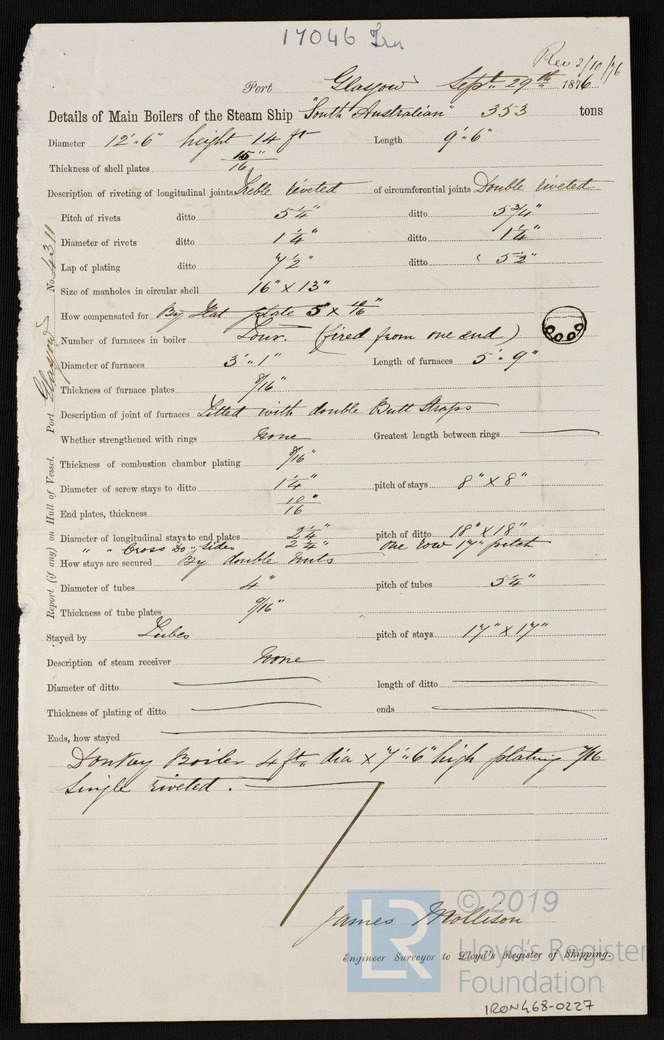 17046 Irn
Rec 2/10/76
Port Glasgow Sept. 29th 1876
Details of Main Boilers of the Steam Ship "South Australian" 353 tons
Diameter 12'.6" height 14 ft Length 9'.6"
Thickness of shell plates 15/16"
Description of riveting of longitudinal joints Treble riveted of circumferential joints Double riveted
Pitch of rivets ditto 5 1/4" ditto 5 3/4"
Diameter of rivets ditto 1 1/4" ditto 1 1/4"
Lap of plating ditto 7 1/2" ditto 5 1/2"
Size of manholes in circular shell 16" x 13"
How compensated for By Flat plate 5 x 10/16"
Number of furnaces in boiler Four. (fired from one end)
Diameter of furnaces 3'.1" Length of furnaces 5'.9"
Thickness of furnace plates 8/16"
Description of joint of furnaces Fitted with double Butt Straps
Whether strengthened with rings None Greatest length between rings
Thickness of combustion chamber plating 8/16"
Diameter of screw stays to ditto 1 1/4" pitch of stays 8" x 8"
End plates, thickness 10/16"
Diameter of longitudinal stays to end plates 2 1/4" pitch of ditto 18" x 18"
" " Cross Do " Sides 2 1/4" One row 17" pitch
How stays are secured By double Nuts
Diameter of tubes 4" pitch of tubes 5 1/4"
Thickness of tube plates 9/16"
Stayed by Tubes pitch of stays 17" x 17"
Description of steam receiver None
Diameter of ditto length of ditto
Thickness of plating of ditto ends
Ends, how stayed
Donkey Boiler 4 ft. dia x 7'.6" high plating 7/16
Single riveted.
James Mollison
Engineer Surveyor to Lloyd's Register of Shipping.
Report (if any) on Hull of Vessel. Port Glasgow No. 4311
LR © 2019
Lloyd's Register
Foundation
IRON468-0227